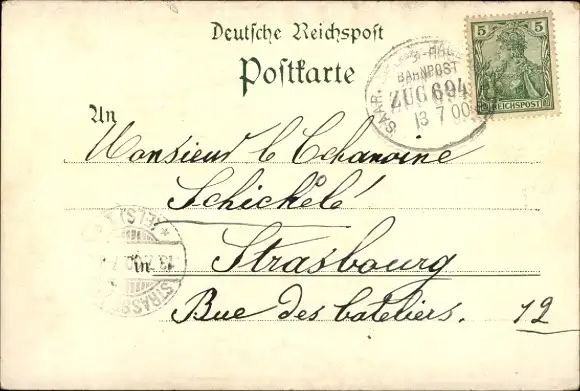 Deutsche Reichspost
Postkarte
5
REICHSPOST
SAAR.
BAHNPOST
ZUG 694
13 7 00
An
Monsieur le Chanoine
Schickelé
in Strasbourg
Rue des bateliers. 12